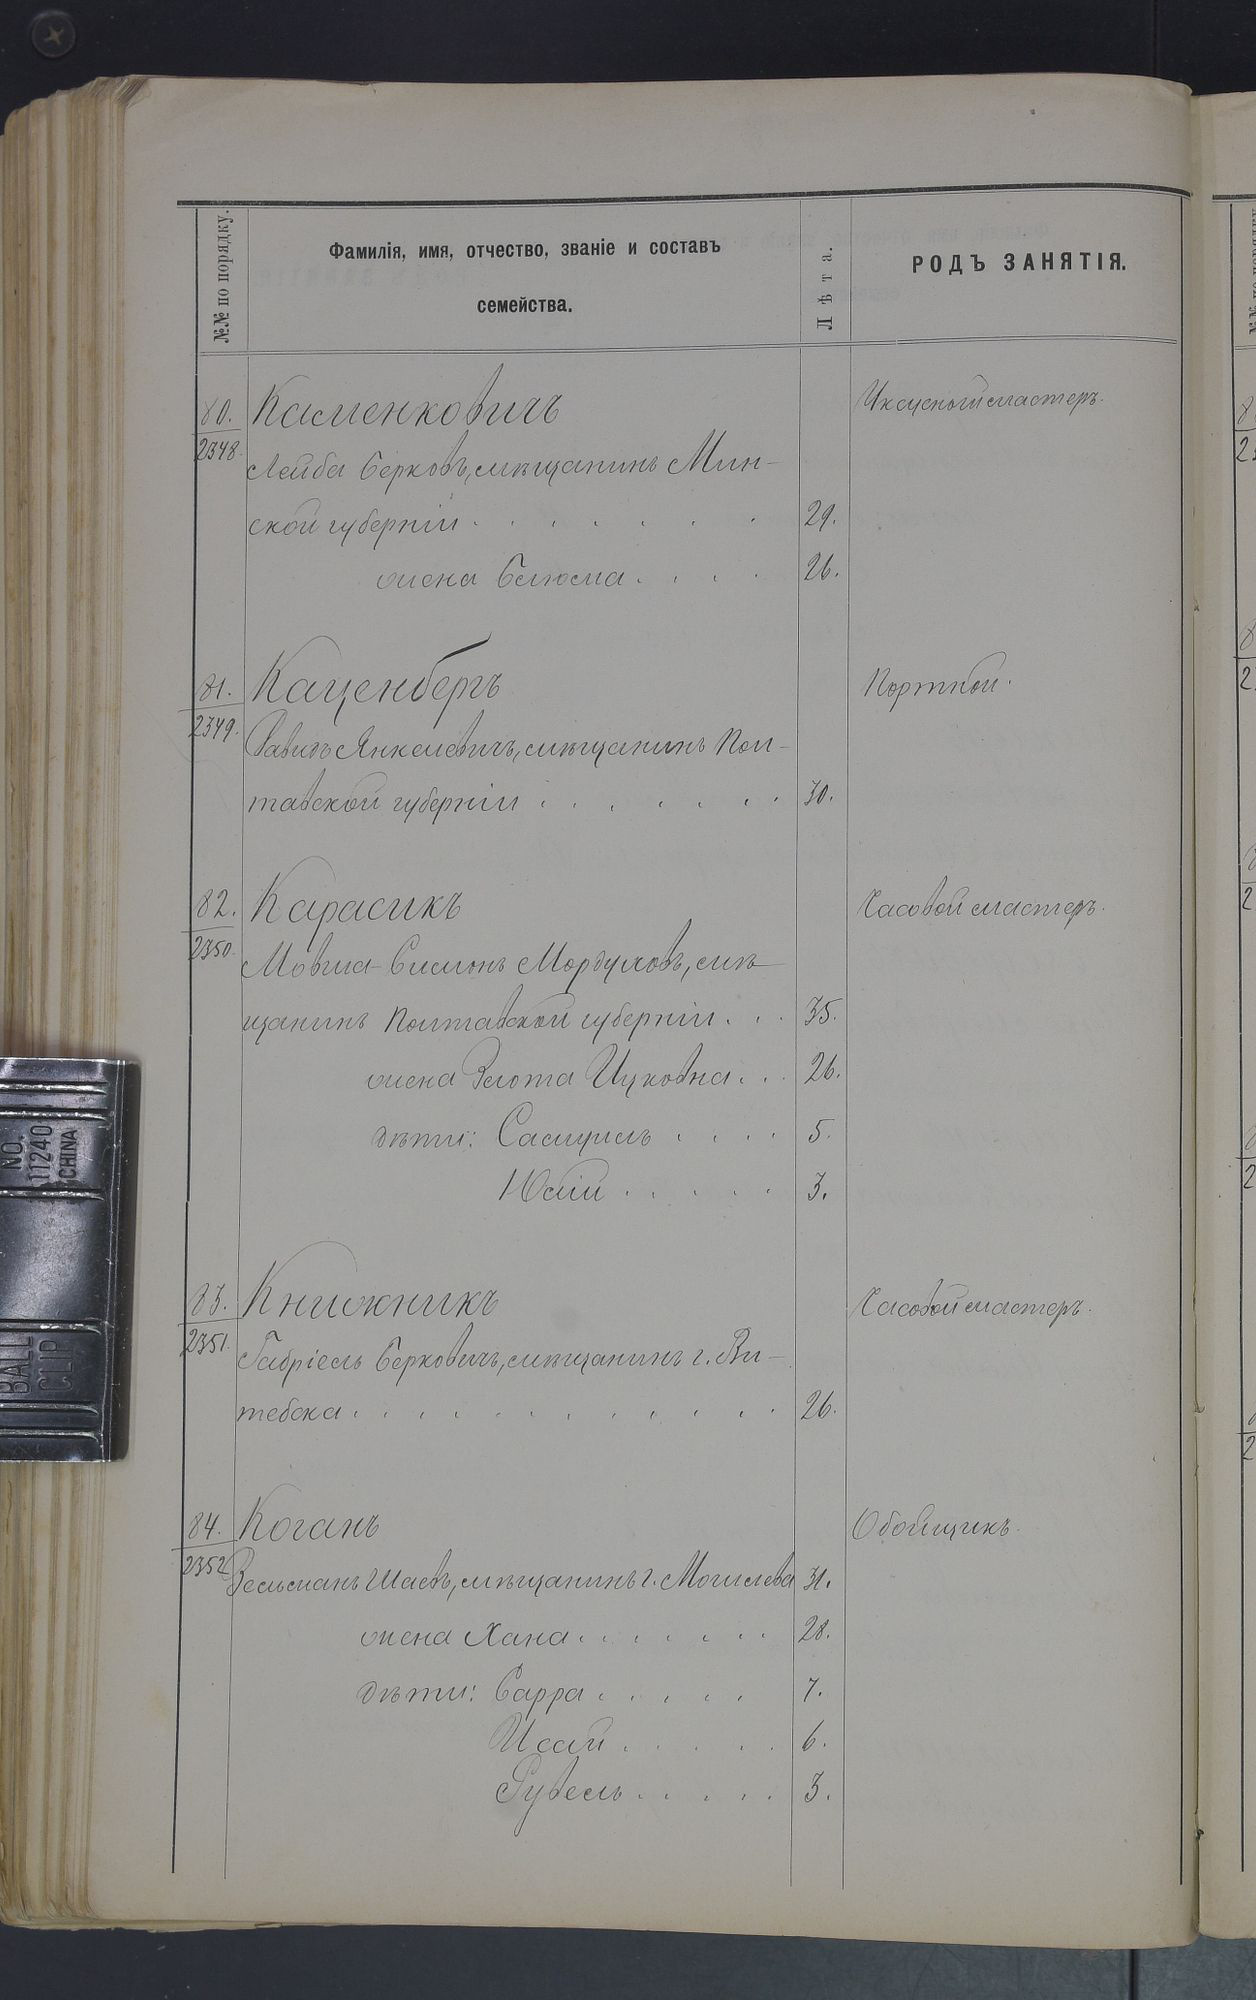 №№ по порядку.
Фамилія, имя, отчество, званіе и составъ
семейства.
Лѣта.
РОДЪ ЗАНЯТІЯ.
80. Каменковичъ Уксусный мастеръ.
2348.
Лейба Берковъ, мѣщанинъ Мин-
ской губерніи . . . . . . . 29.
жена Блюма . . . . 26.
81. Каценбергъ Портной.
2349.
Давидъ Янкелевичъ, мѣщанинъ Пол-
тавской губерніи . . . . . . . 30.
82. Карасикъ Часовой мастеръ.
2350.
Мовша-Симонъ Мордуховъ, мѣ-
щанинъ Полтавской губерніи . . . 35.
жена Злота Ицковна . . . 26.
дѣти: Самуилъ . . . . 5.
Юлій . . . . . 3.
83. Книжникъ Часовой мастеръ.
2351.
Габріель Берковичъ, мѣщанинъ г. Ви-
тебска . . . . . . . . . . . . . 26.
84. Коганъ Обойщикъ.
2352
Зельманъ Шаевъ, мѣщанинъ г. Могилева 31.
жена Хана . . . . . . . 28.
дѣти: Сарра . . . . . 7.
Исай . . . . . 6.
Рувель . . . . . 3.
NO.
11240
CHINA
BALL
CLIP